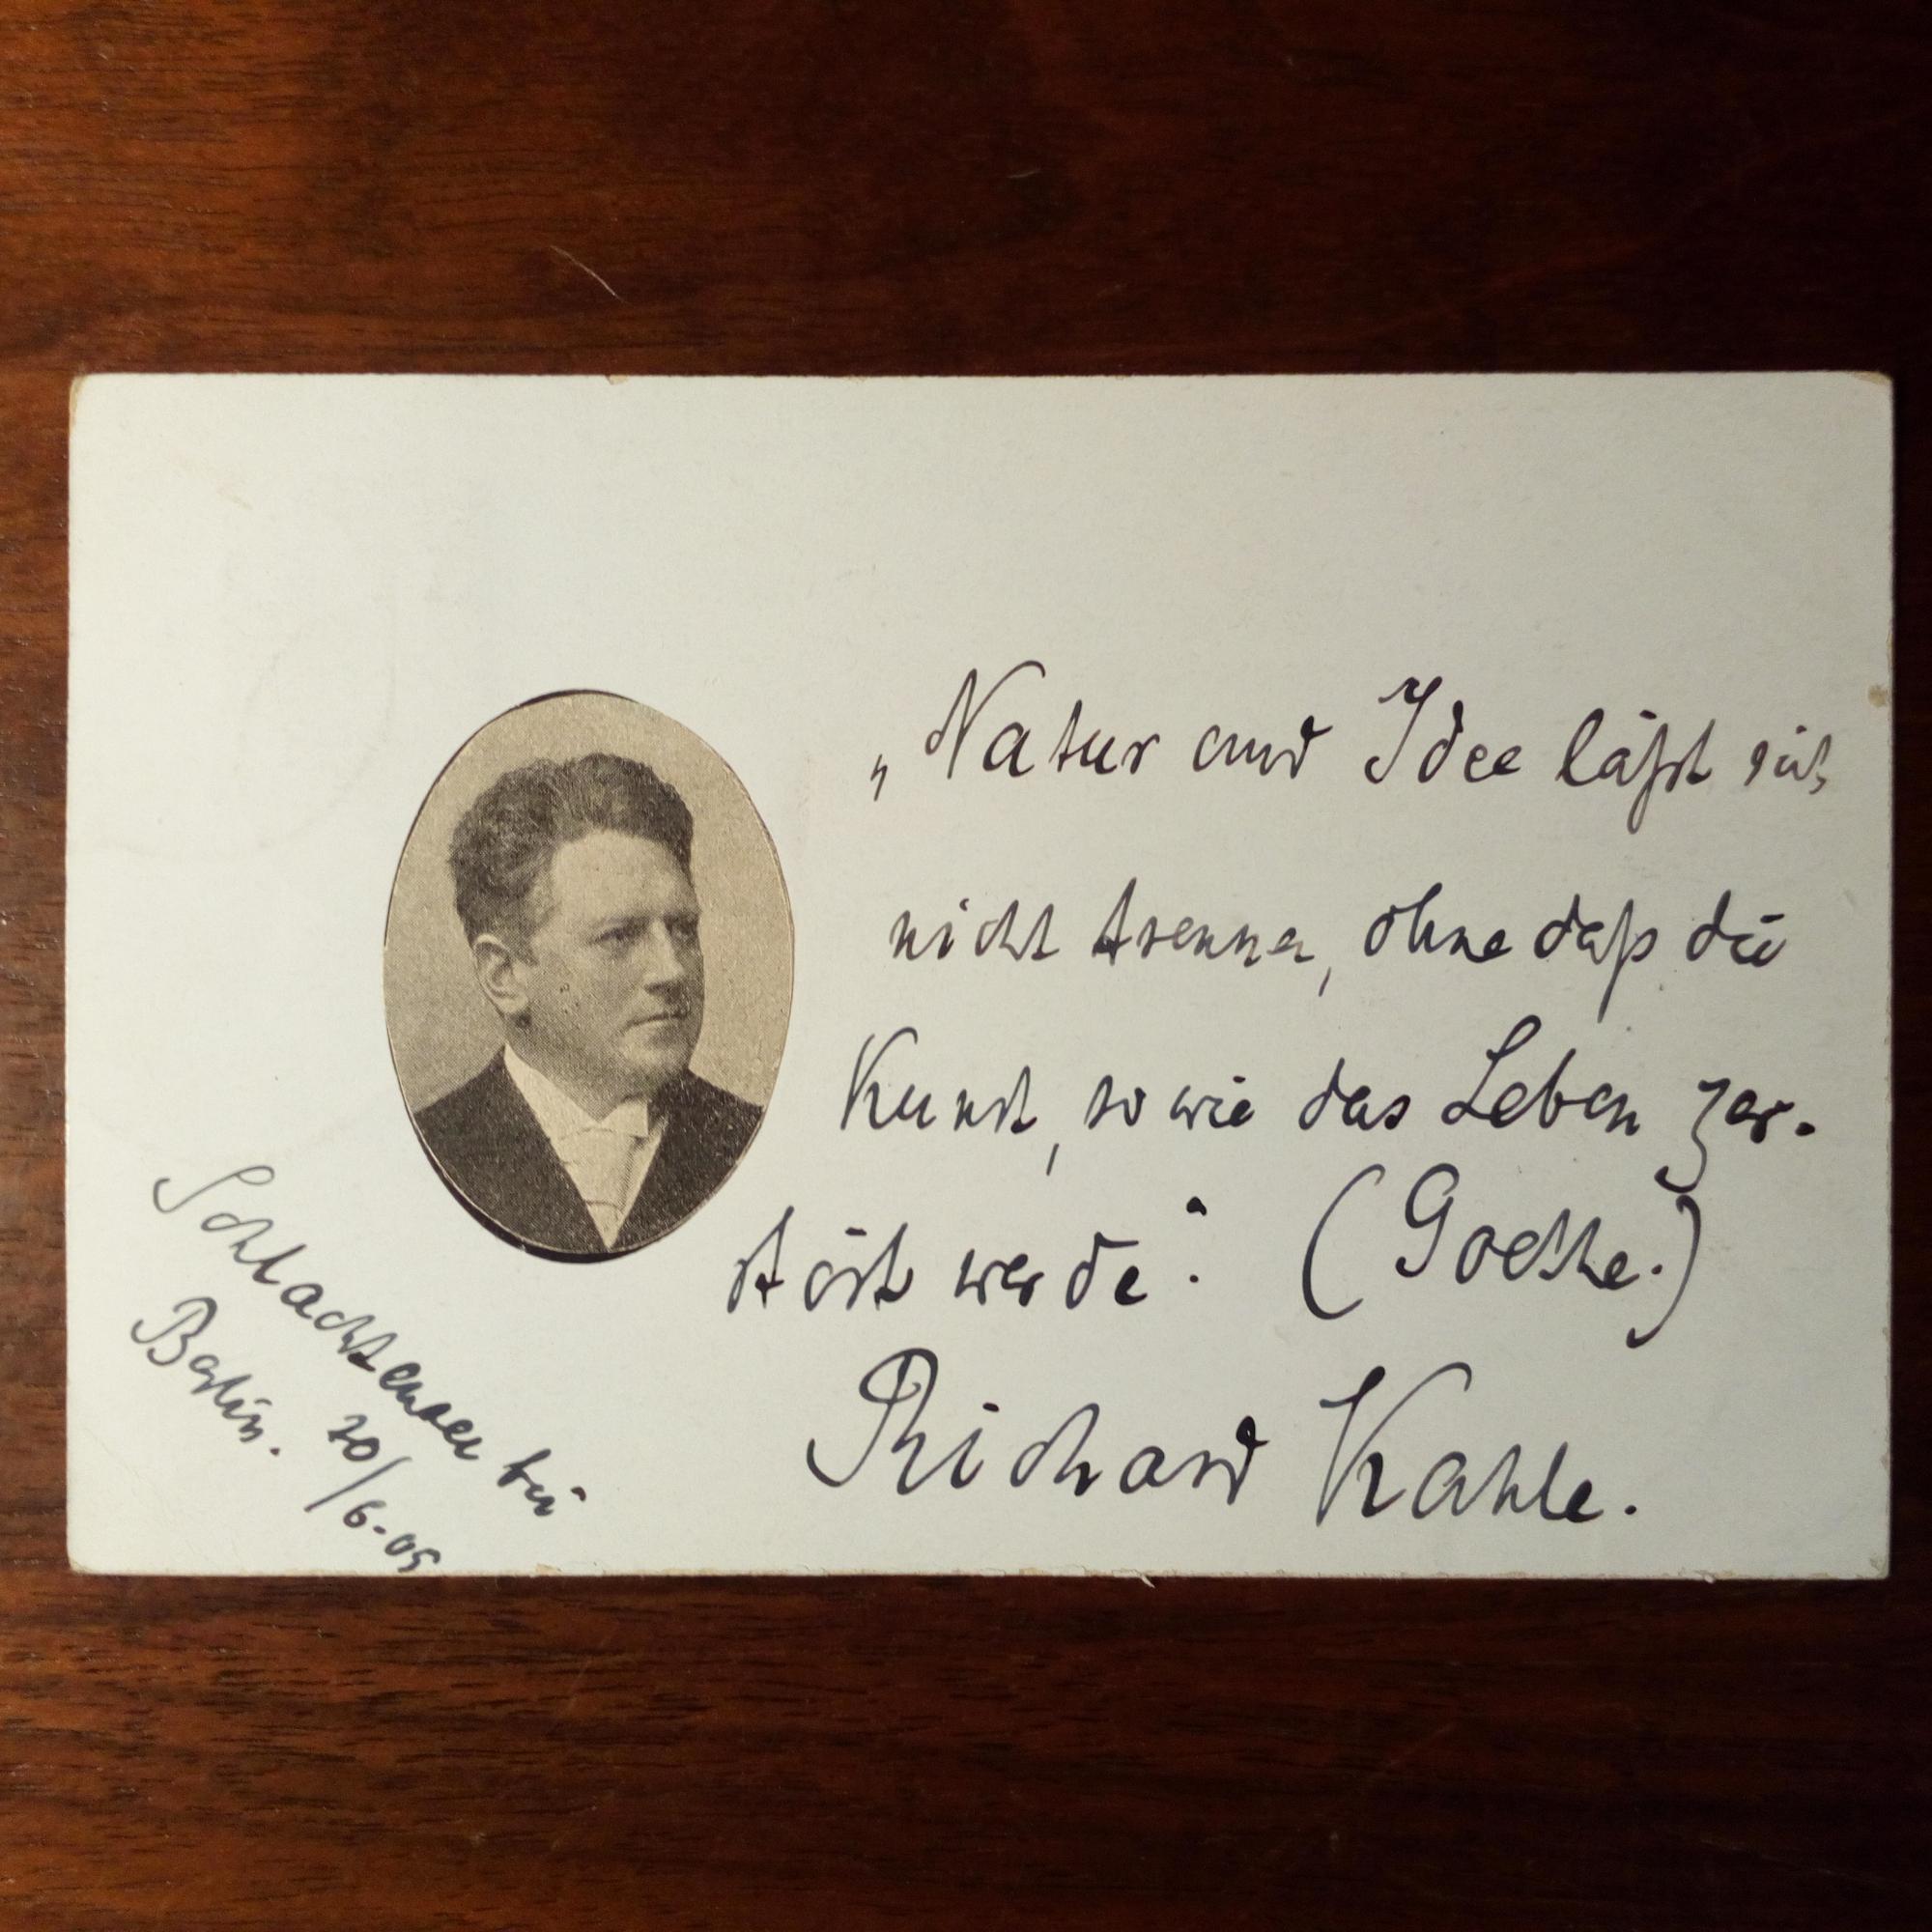 „Natur und Idee läßt sich
nicht trennen, ohne daß die
Kunst, so wie das Leben zer-
stört werde." (Goethe.)
Richard Kahle.
Schlachtensee bei
Berlin. 20/6.05